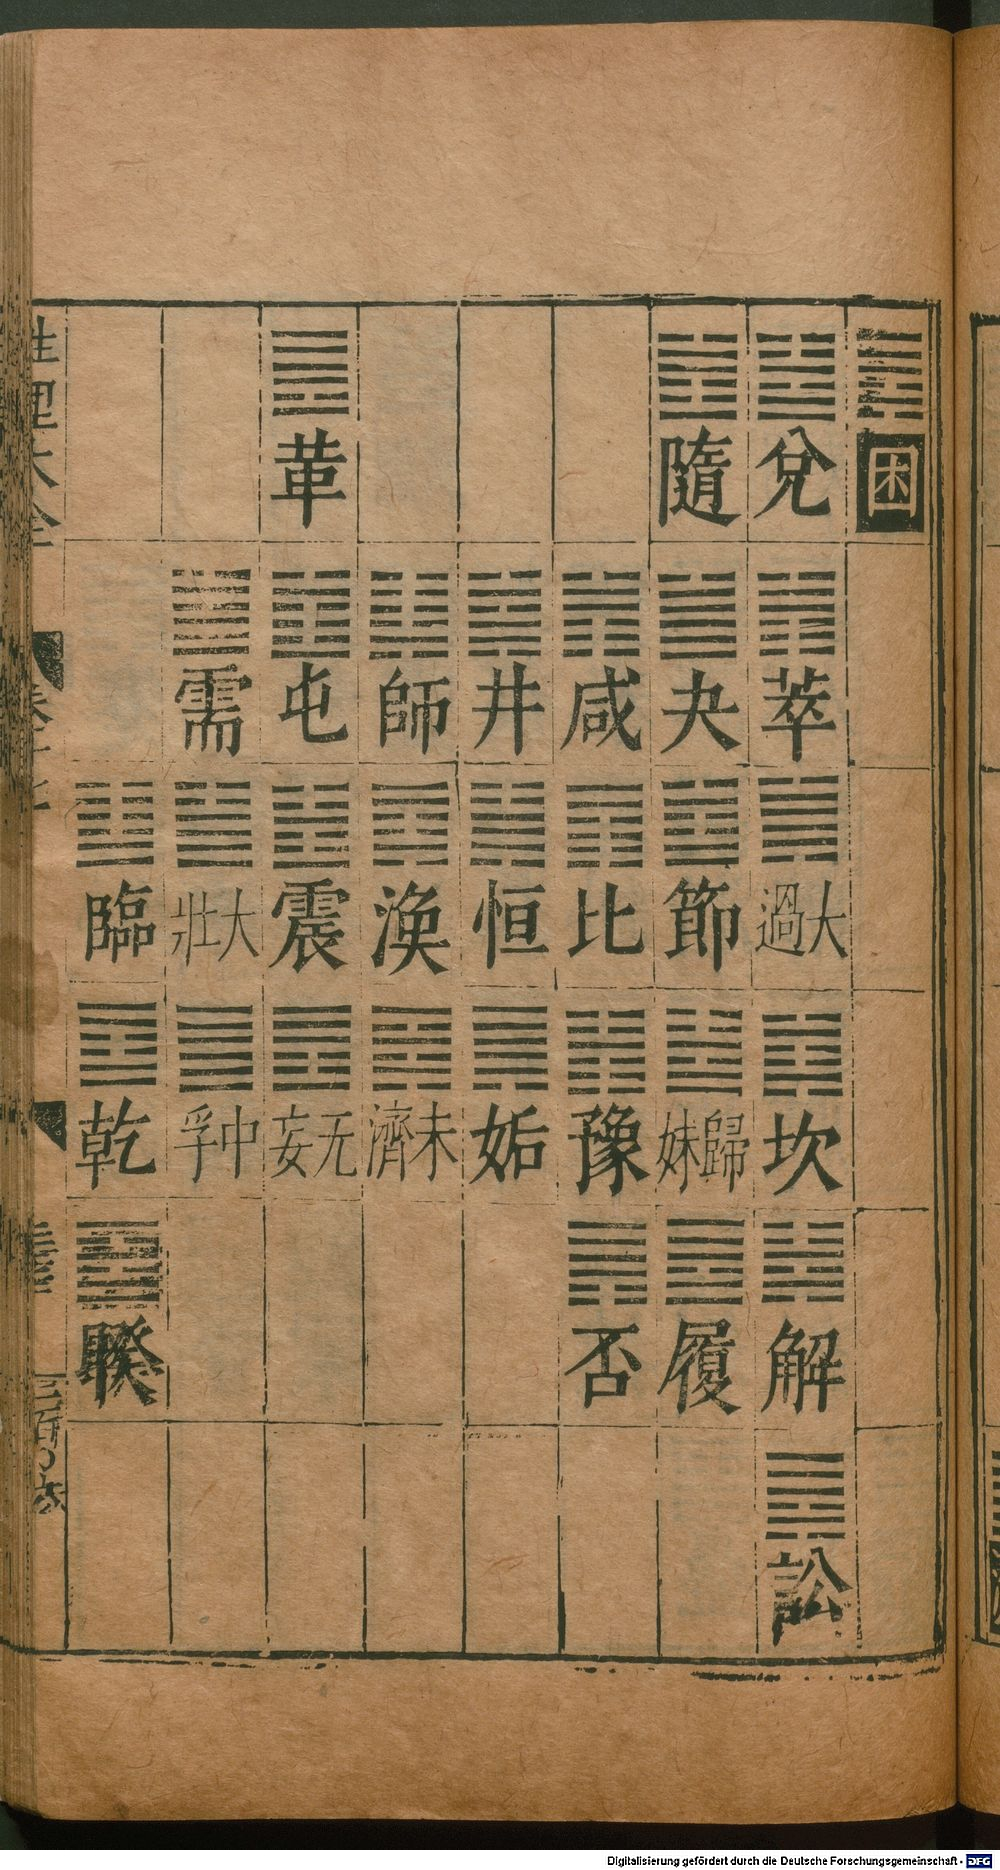 困
兌 萃 大過 坎 解 訟
隨 夬 節 歸妹 履
咸 比 豫 否
井 恒 姤
師 渙 未濟
革 屯 震 无妄
需 大壯 中孚
臨 乾 睽
性理大全
Digitalisierung gefördert durch die Deutsche Forschungsgemeinschaft - DFG